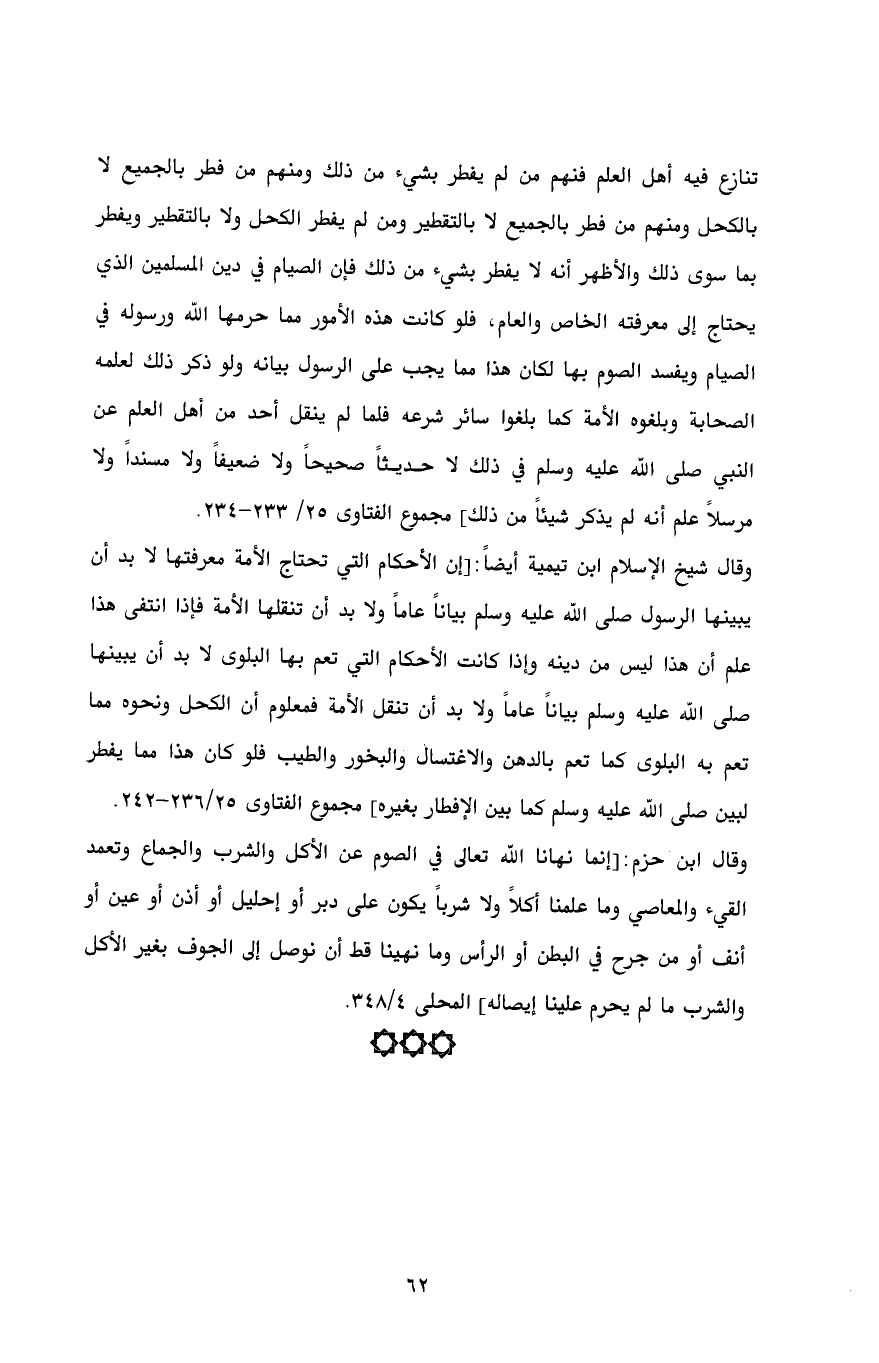 تنازع فيه أهل العلم فنهم من لم يفطر بشيء من ذلك ومنهم من فطر بالجميع لا
بالكحل ومنهم من فطر بالجميع لا بالتقطير ومن لم يفطر الكحل ولا بالتقطير ويفطر
بما سوى ذلك والأظهر أنه لا يفطر بشيء من ذلك فإن الصيام في دين المسلمين الذي
يحتاج إلى معرفته الخاص والعام، فلو كانت هذه الأمور مما حرمها الله ورسوله في
الصيام ويفسد الصوم بها لكان هذا مما يجب على الرسول بيانه ولو ذكر ذلك لعلمه
الصحابة وبلغوه الأمة كما بلغوا سائر شرعه فلما لم ينقل أحد من أهل العلم عن
النبي صلى الله عليه وسلم في ذلك لا حديثاً صحيحاً ولا ضعيفاً ولا مسنداً ولا
مرسلاً علم أنه لم يذكر شيئاً من ذلك] مجموع الفتاوى ٢٥/ ٢٣٣-٢٣٤.
وقال شيخ الإسلام ابن تيمية أيضاً:[إن الأحكام التي تحتاج الأمة معرفتها لا بد أن
يبينها الرسول صلى الله عليه وسلم بياناً عاماً ولا بد أن تنقلها الأمة فإذا انتفى هذا
علم أن هذا ليس من دينه وإذا كانت الأحكام التي تعم بها البلوى لا بد أن يبينها
صلى الله عليه وسلم بياناً عاماً ولا بد أن تنقل الأمة فمعلوم أن الكحل ونحوه مما
تعم به البلوى كما تعم بالدهن والاغتسال والبخور والطيب فلو كان هذا مما يفطر
لبين صلى الله عليه وسلم كما بين الإفطار بغيره] مجموع الفتاوى ٢٣٦/٢٥-٢٤٢.
وقال ابن حزم:[إنما نهانا الله تعالى في الصوم عن الأكل والشرب والجماع وتعمد
القيء والمعاصي وما علمنا أكلاً ولا شرباً يكون على دبر أو إحليل أو أذن أو عين أو
أنف أو من جرح في البطن أو الرأس وما نهينا قط أن نوصل إلى الجوف بغير الأكل
والشرب ما لم يحرم علينا إيصاله] المحلى ٣٤٨/٤.
٦٢